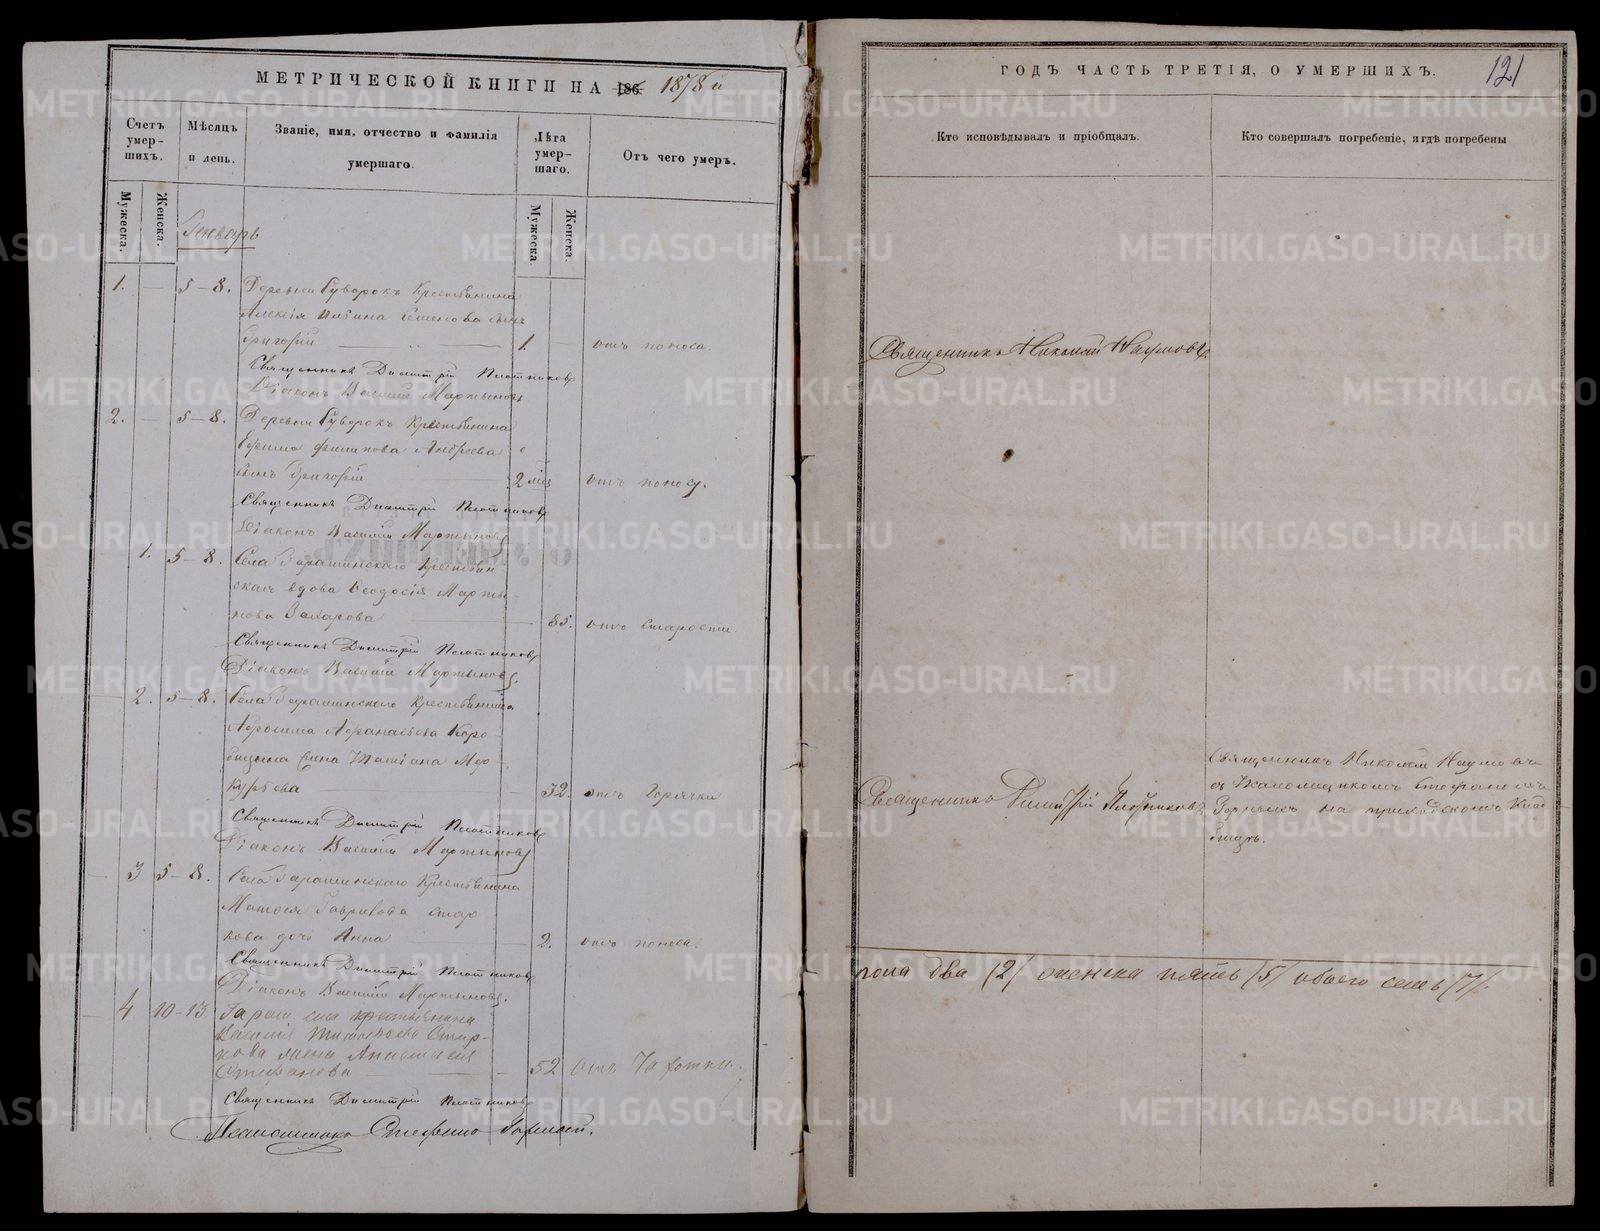 МЕТРИЧЕСКОЙ КНИГИ НА 186 1878 й
Счетъ умер-шихъ.
Мѣсяцъ и день.
Званіе, имя, отчество и фамилія умершаго.
Лѣта умер-шаго.
Отъ чего умеръ.
Мужеска.
Женска.
Мужеска.
Женска.
Генварь
1. — 5–8. Деревни Гуворокъ Крестьянина
Алексія сынъ
Григорій — 1. — отъ поноса.
Священникъ Димитрій Плотниковъ
Діаконъ Василій Мартыновъ
2. — 5–8. Деревни Гуворокъ Крестьянина
Ефима Филипова Андреева
сынъ Григорій 2 мѣс отъ поносу.
Священникъ Димитрій Плотниковъ
Діаконъ Василій Мартыновъ
1. 5–8. Села Гарашинскаго Крестьян
ская вдова Феодосія Марты-
нова Захарова 85. отъ старости.
Священникъ Димитрій Плотниковъ
Діаконъ Василій Мартыновъ.
2. 5–8. Села Гарашинскаго Крестьянина
Афанасьева Коро-
Татіана Мар-
52. отъ Горячки
Священникъ Димитрій Плотниковъ
Діаконъ Василій Мартыновъ
3 5–8. Села Гарашинскаго Крестьянина
Матфея Гаврилова Стар-
кова дочь Анна 2. отъ поноса.
Священникъ Димитрій Плотниковъ
Діаконъ Василій Мартыновъ.
4 10–13 Гараш. села крестьянина
Василія Тимофѣева Стар-
кова жена Анастасія
Стефанова — 52 отъ Чахотки.
Священникъ Димитрій Плотниковъ
Псаломщикъ Стефанъ
ГОДЪ ЧАСТЬ ТРЕТІЯ, О УМЕРШИХЪ.
121
Кто исповѣдывалъ и пріобщалъ.
Кто совершалъ погребеніе, и гдѣ погребены
Священникъ Николай Наумовъ
Священникъ Димитрій Плотниковъ
Священникъ Николай Наумовъ
съ Псаломщикомъ Стефаномъ
на приходскомъ Клад-
бищѣ.
пола два (2) женска пять (5) обоего семь (7).
METRIKI.GASO-URAL.RU